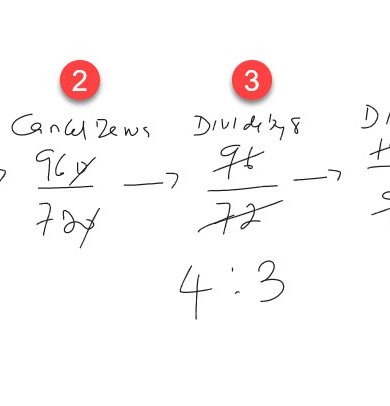 2 3
Cancel Zeros Divide by 8 Di
960 → 96 →
720 72
4 : 3